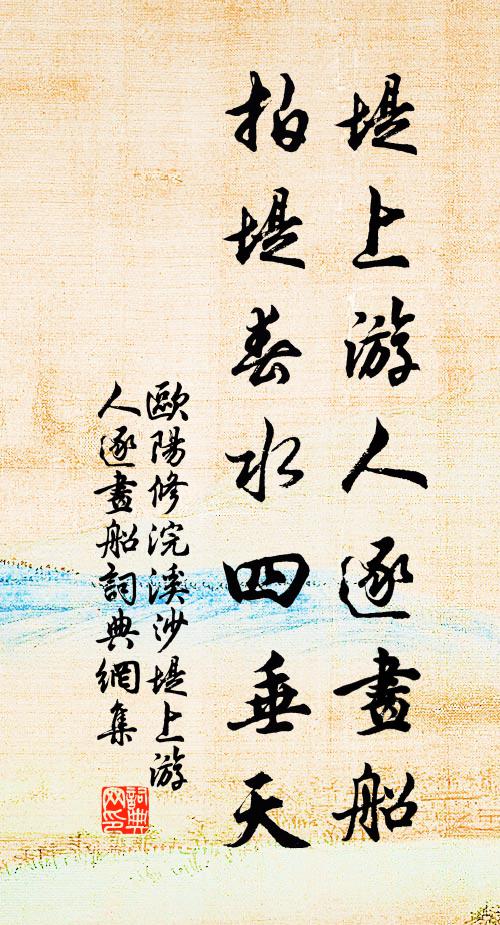 堤上游人逐畫船
拍堤春水四垂天
歐陽修浣溪沙堤上游
人逐畫船詞典網集
詞典
网印